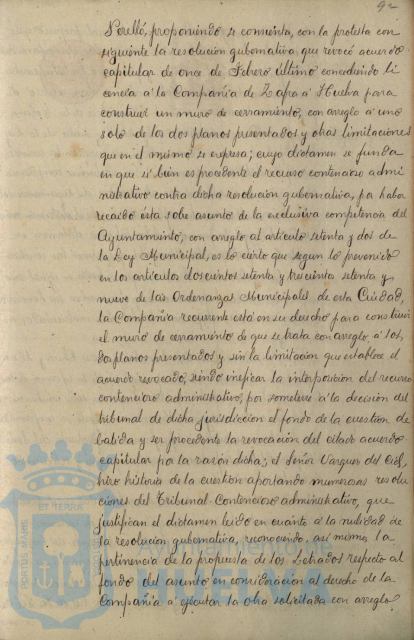 92
Borelló, proponiendo se consienta, con la protesta con
siguiente la resolución gubernativa, que revocó acuerdo
capitular de once de Febrero último concediendo li
cencia á la Compañía de Zafra á Huelva para
construir un muro de cerramiento, con arreglo á uno
solo de los dos planos presentados y otras limitaciones
que en el mismo se expresa; cuyo dictamen se funda
en que si bien es procedente el recurso contencioso admi
nistrativo contra dicha resolución gubernativa, por haber
recaido ésta sobre asunto de la exclusiva competencia del
Ayuntamiento, con arreglo al artículo setenta y dos de
la Ley Municipal, es lo cierto que segun lo prevenido
en los artículos doscientos setenta y trescientos setenta y
nueve de las Ordenanzas Municipales de esta Ciudad,
la Compañía recurrente está en su derecho para construir
el muro de cerramiento de que se trata con arreglo á los
dos planos presentados y sin la limitacion que establece el
acuerdo revocado, siendo ineficaz la interposición del recurso
contencioso administrativo, por someterse á la decisión del
tribunal de dicha jurisdiccion el fondo de la cuestion de
batida y ser procedente la revocación del citado acuerdo
capitular por la razón dicha; el Señor Vazquez del Cid,
hizo historia de la cuestion aportando numerosas resolu
ciones del Tribunal Contencioso administrativo, que
justifican el dictamen leido en cuanto á la nulidad de
la resolución gubernativa, reconociendo, asi mismo la
pertinencia de la propuesta de los Letrados respecto al
fondo del asunto en consideracion al derecho de la
Compañía á ejecutar la obra solicitada con arreglo
PORTUS MARIS
ET TERRÆ
CUSTODIA
Ayuntamiento de
HUELVA